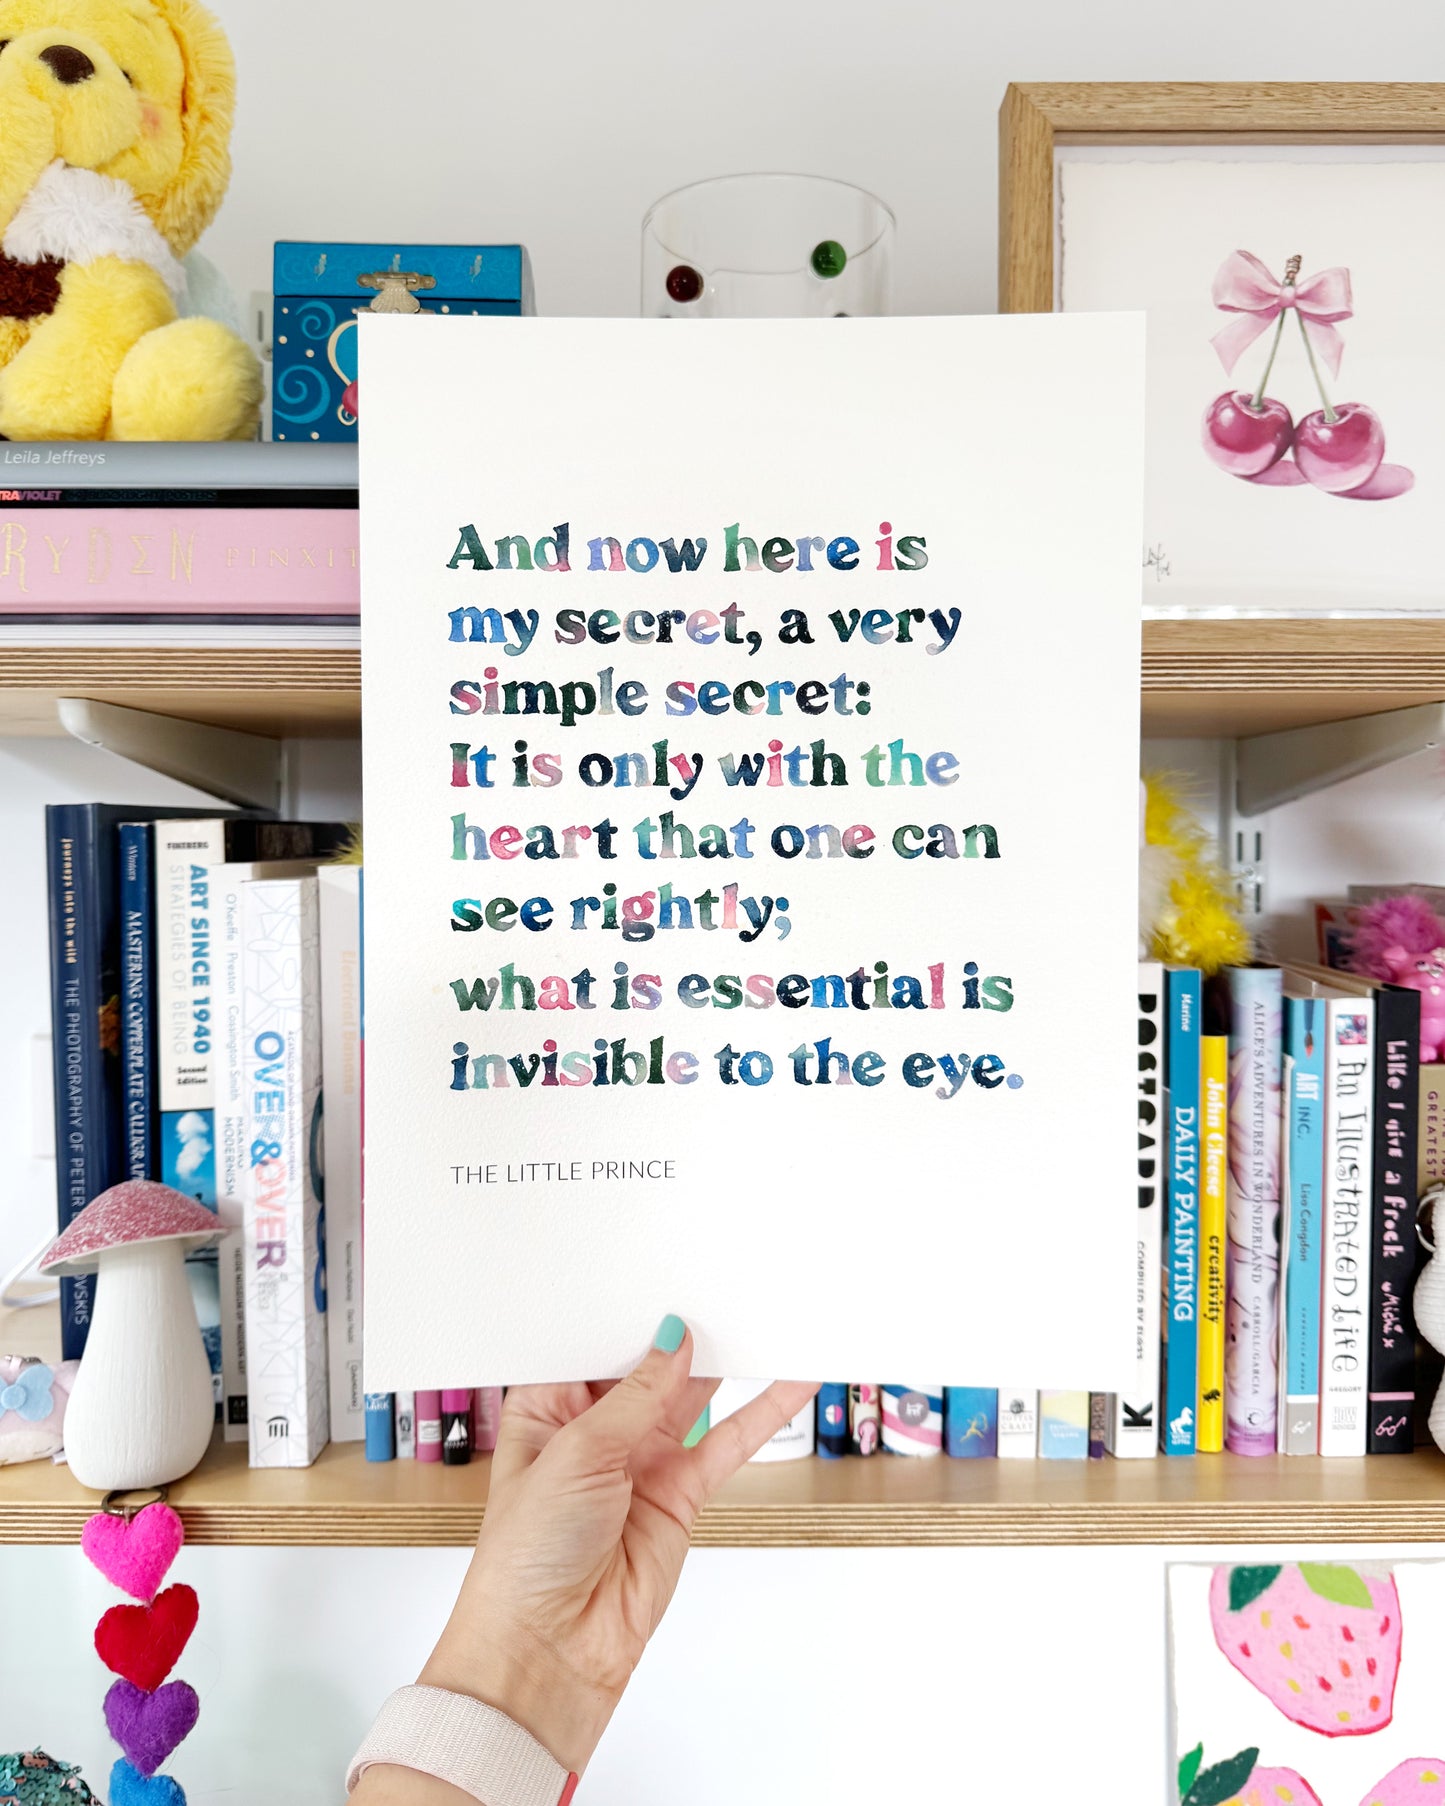 Leila Jeffreys
RYDEN PINXIT
And now here is
my secret, a very
simple secret:
It is only with the
heart that one can
see rightly;
what is essential is
invisible to the eye.
THE LITTLE PRINCE
journeys into the wild THE PHOTOGRAPHY OF PETER
MASTERING COPPERPLATE CALLIGRA
FINEBERG
ART SINCE 1940
STRATEGIES OF BEING
Second
Edition
O'Keeffe Preston Cossington Smith
MODERNISM
OVER&OVER
POSTCARD
Marine DAILY PAINTING
John Cleese creativity
ALICE'S ADVENTURES IN WONDERLAND CARROLL/GARCIA
ART INC. Lisa Congdon
An Illustrated Life GREGORY
Like I give a frock
GREATEST